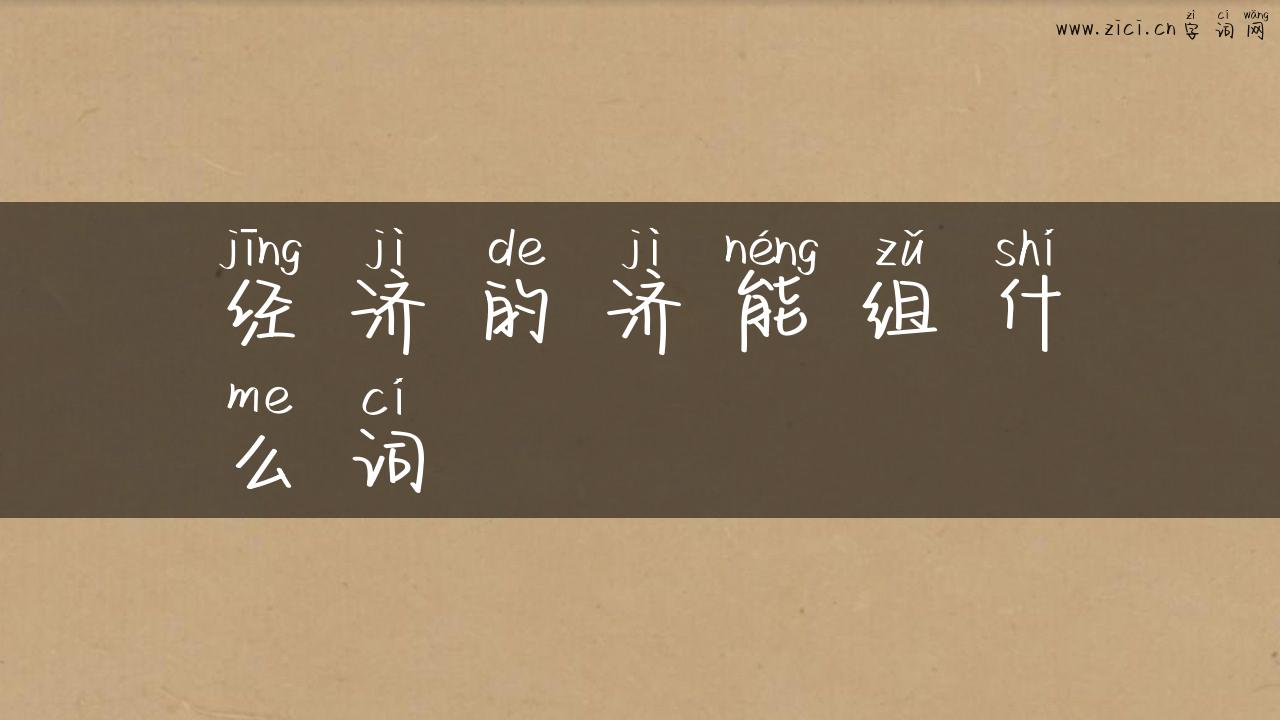 zì cí wǎng
www.zici.cn 字词网
jīng jì de jì néng zǔ shí
经济的济能组什
me cí
么词